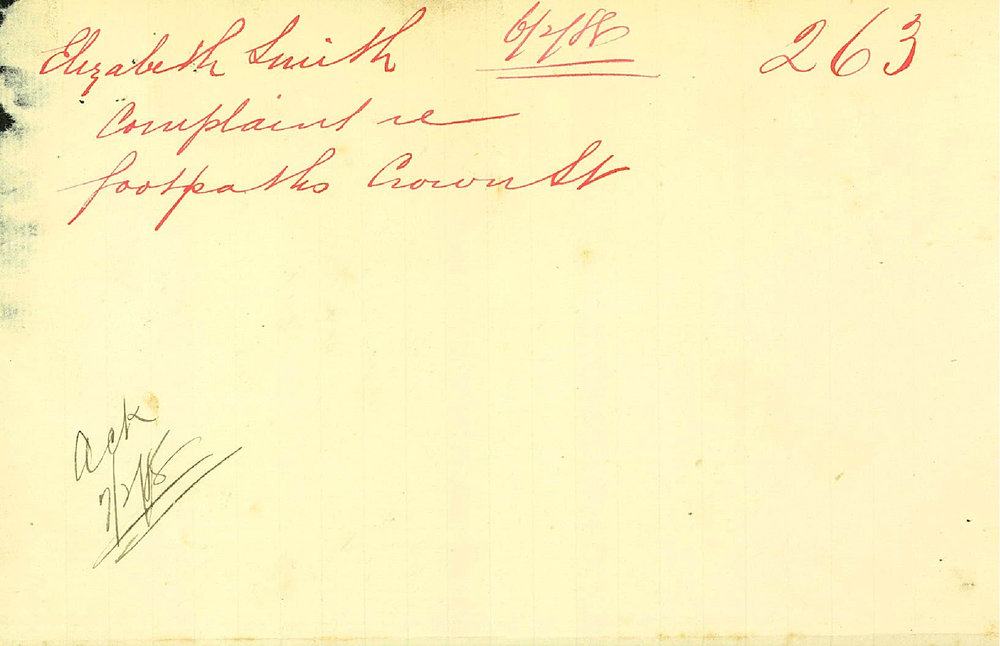 Elizabeth Smith 6/2/08 263
Complaint re
footpaths Crown St
Ack
7/2/08